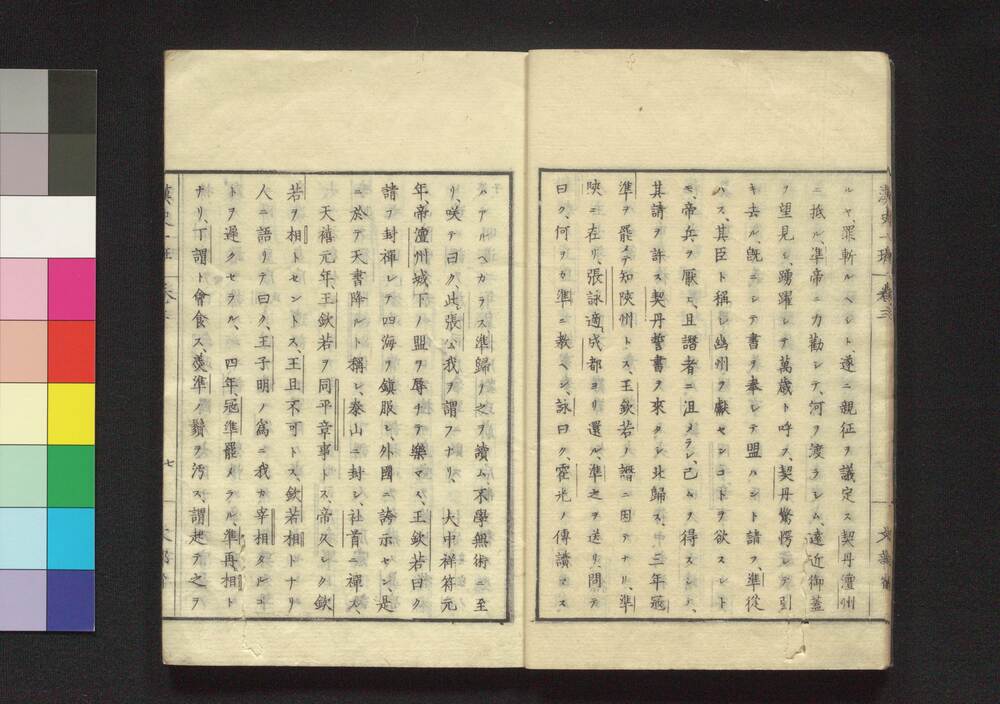 ルヤ、罪斬ルヘシト、遂ニ親征ヲ議定ス契丹澶州
ニ抵ル、準帝ニ力勸シテ、河ヲ渡ラシム、遠近御蓋
ヲ望見シ、踴躍シテ萬歳ト呼フ、契丹驚愕シテ引
キ去ル、既ニシテ書ヲ奉シテ盟ハント請フ、準從
ハス、其臣ト稱シ幽州ヲ獻センコトヲ欲スレト
モ、帝兵ヲ厭ヒ、且譖者ニ沮メラレ、已ムヲ得スシテ、
其請ヲ許ス契丹誓書ヲ來タシ北歸ス、三年寇
準ヲ罷メテ知陜州トス、王欽若ノ譖ニ因テナリ、準
陜ニ在リ、張詠適成都ヨリ還ル、準之ヲ送リ、問テ
曰ク、何ヲカ準ニ教ヘン、詠曰ク、霍光ノ傳讀マス
ハアルヘカラス準歸リ之ヲ讀ム、不學無術ニ至
リ、咲テ曰ク、此張公我ヲ謂フナリ、大中祥符元
年、帝澶州城下ノ盟ヲ辱チテ樂マス、王欽若曰ク
請フ封禪シテ四海ヲ鎮服シ、外國ニ誇示セン、是
ニ於テ天書降ルト稱シ、泰山ニ封シ、社首ニ禪ス、
天禧元年、王欽若ヲ同平章事トス、帝久シク欽
若ヲ相トセントス、王旦不可トス、欽若相トナリ
人ニ語リテ曰ク、王子明ノ爲ニ我カ宰相タルコ
トヲ遲クセラル、四年、寇準罷メラル、準再相ト
ナリ、丁謂ト會食ス、羹準ノ鬚ヲ汚ス、謂起テ之ヲ